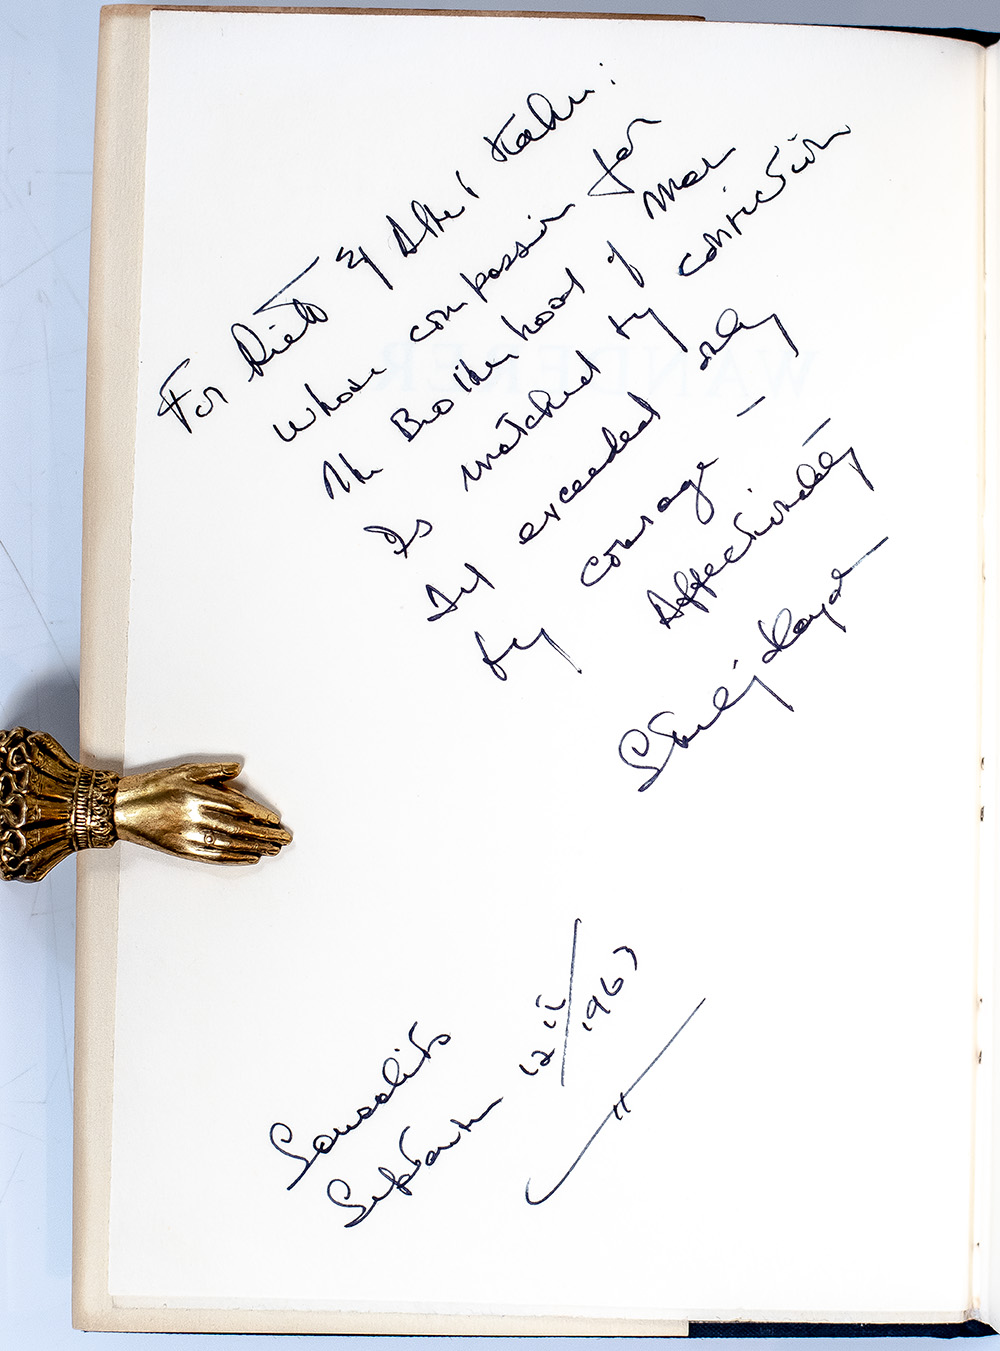 For Rieta & Albert Kahn:
whose compassion for
the Brotherhood of man
Is matched by conviction
And exceeded only
by courage —
Affectionately
Sterling Hayden
Sausalito
September 12th/1963
WANDERER